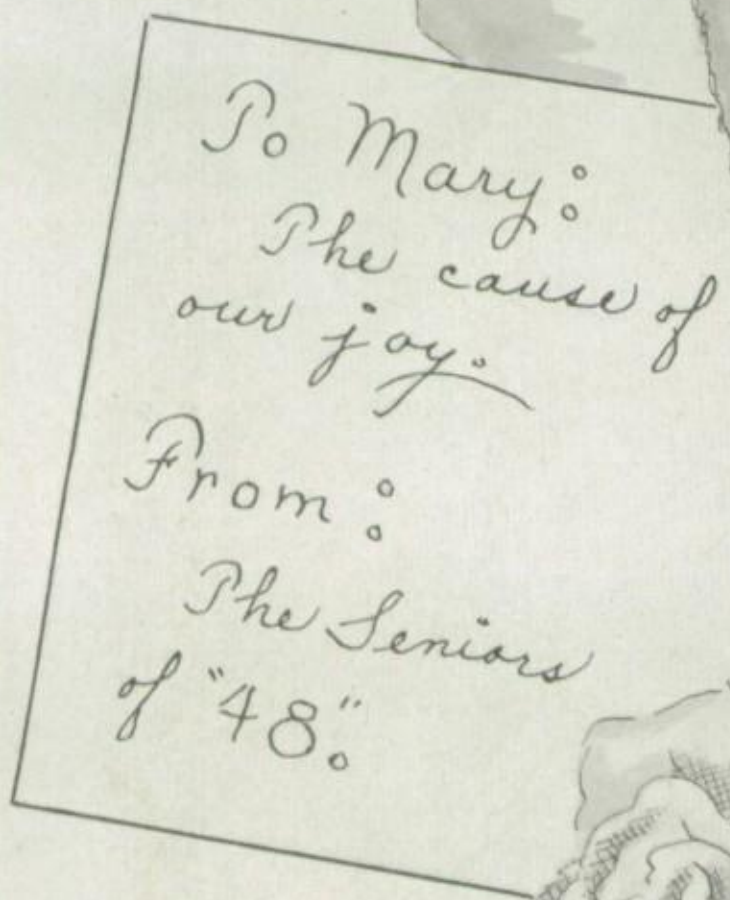 To Mary:
The cause of
our joy.
From:
The Seniors
of "48".